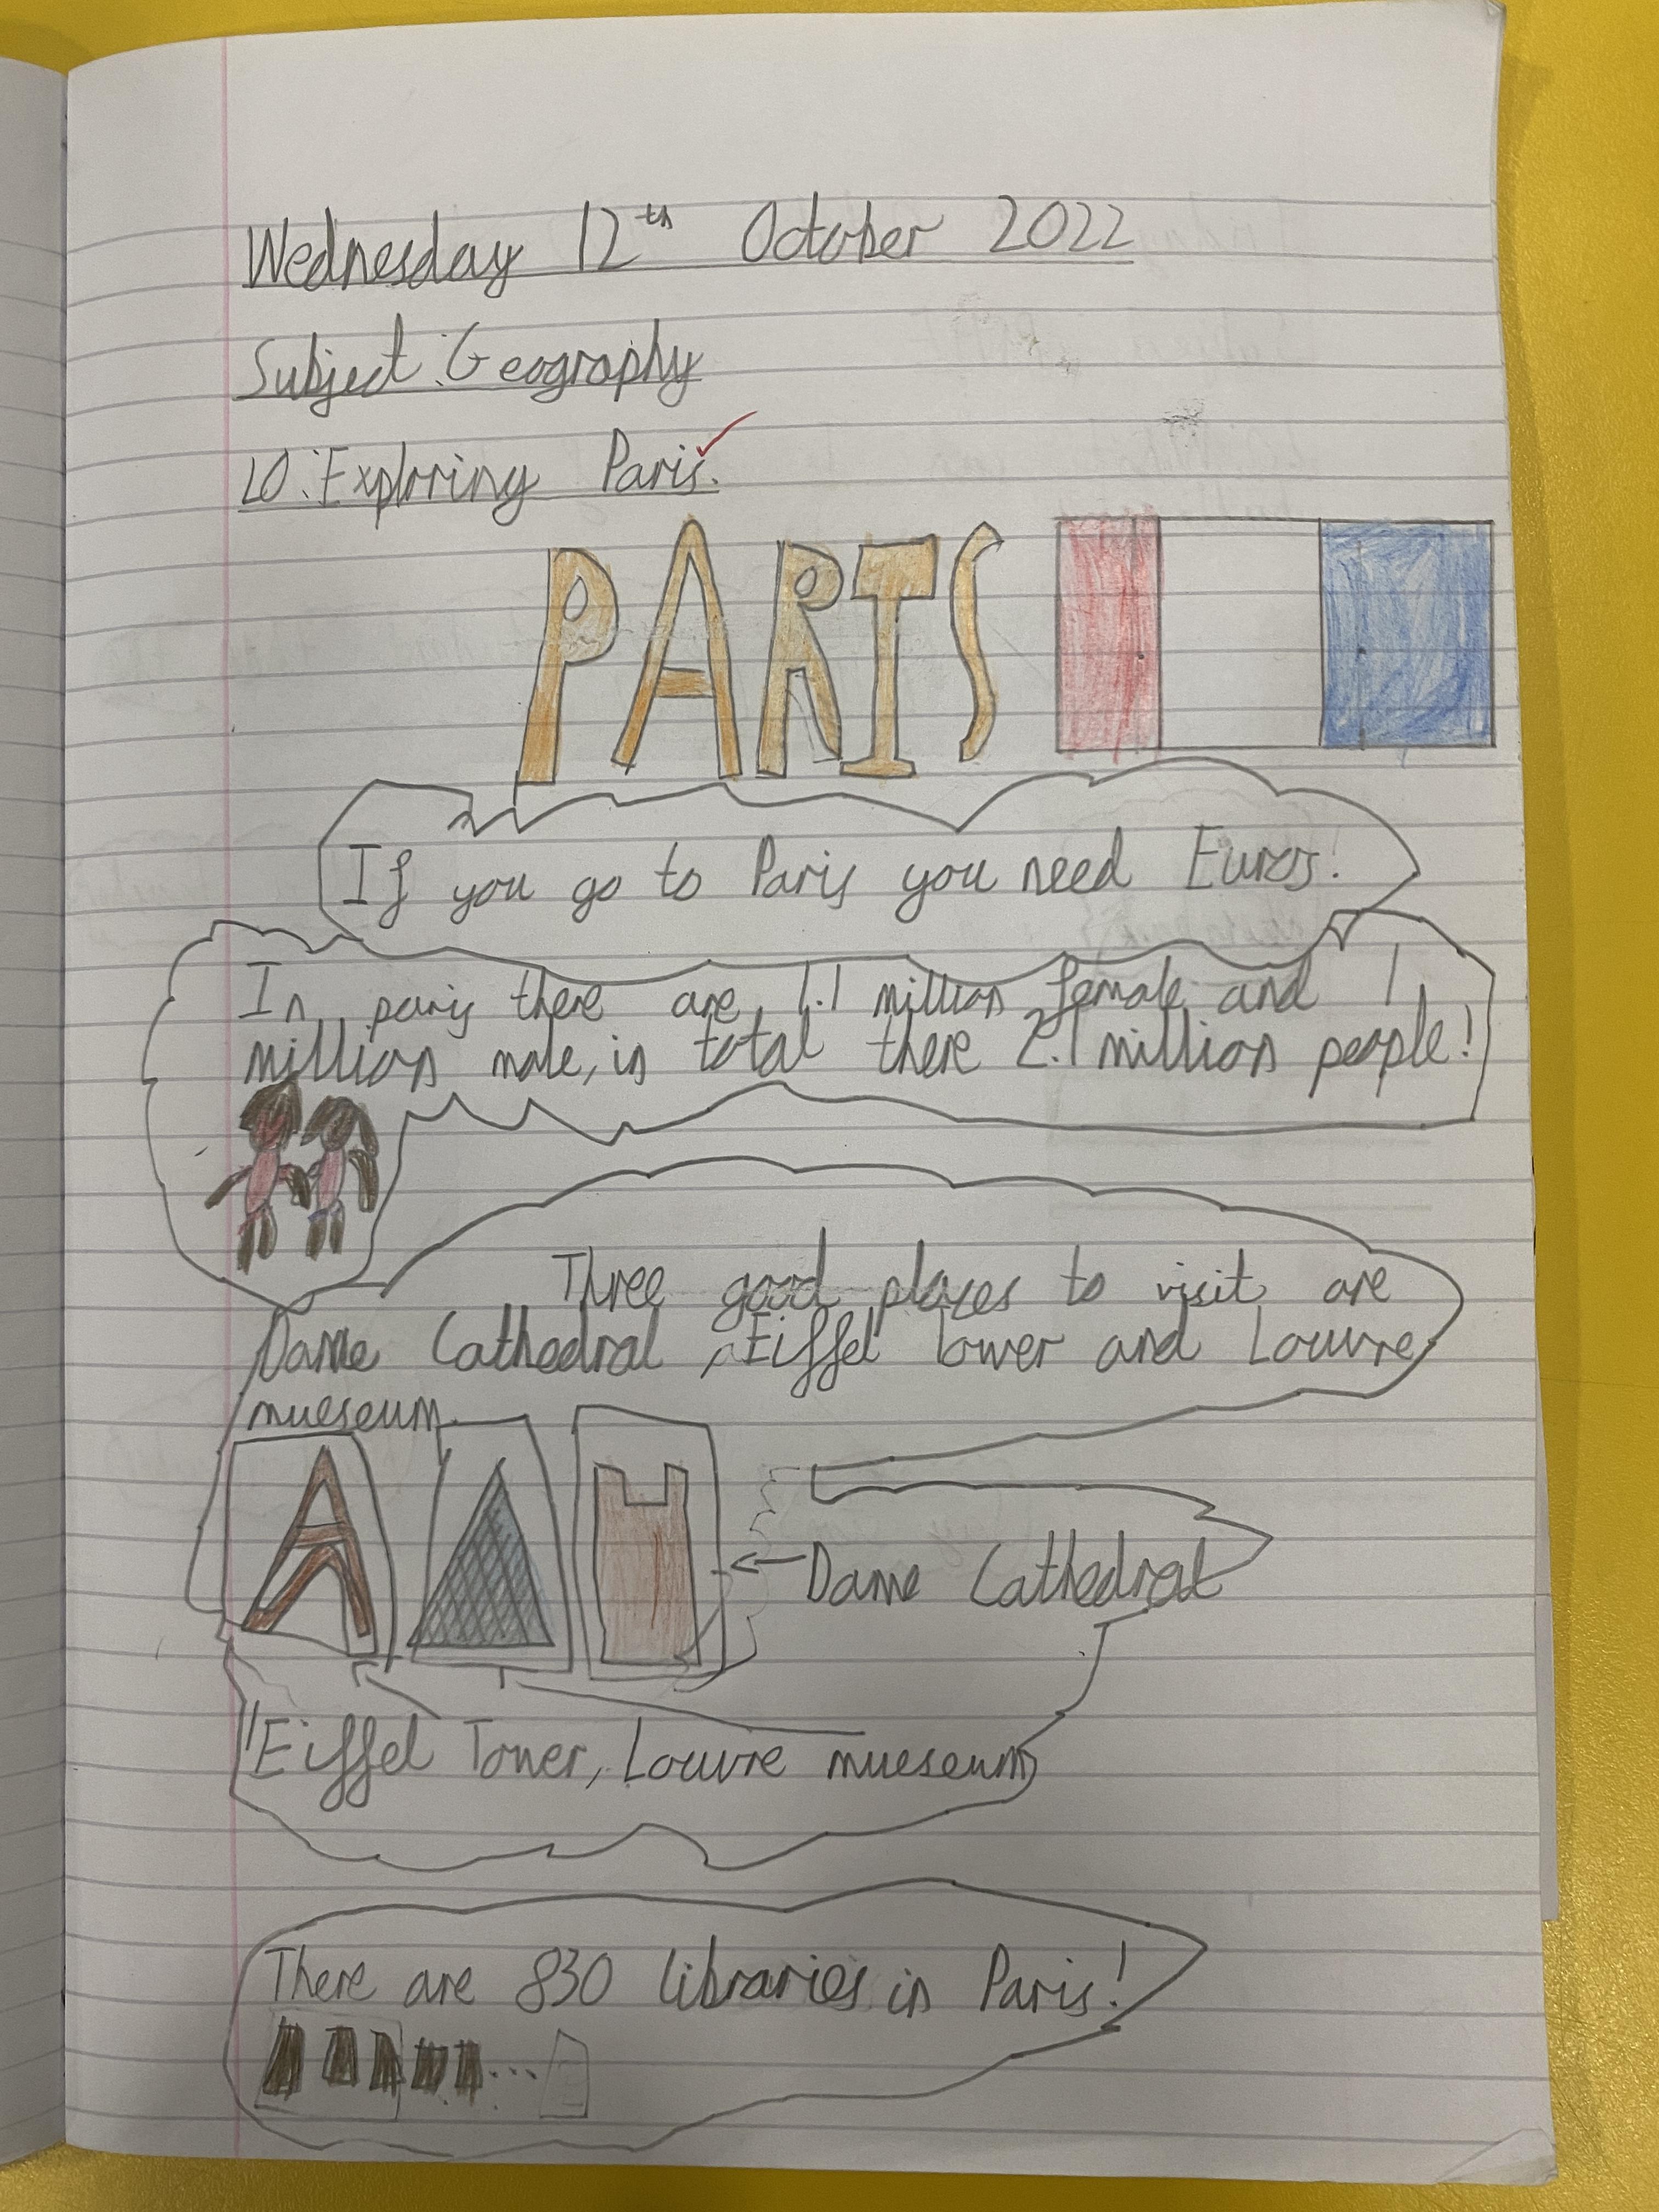 Wednesday 12th October 2022
Subject: Geography
LO: Exploring Paris.
PARIS
If you go to Paris you need Euros!
In paris there are 1.1 million female and 1
million male, in total there 2.1 million people!
Three good places to visit are
Dame Cathedral, Eiffel tower and Louvre
mueseum.
Dame Cathedral
Eiffel Tower, Louvre mueseum
There are 830 libraries in Paris!